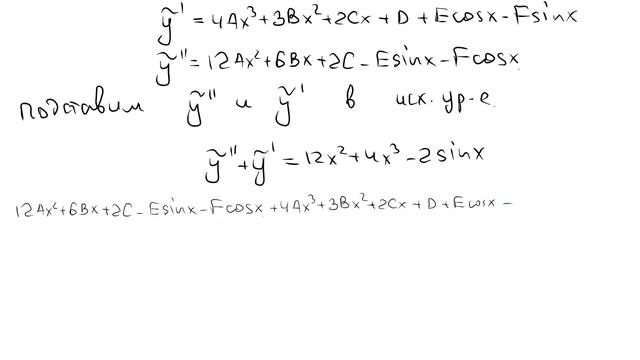 ỹ' = 4Ax³ + 3Bx² + 2Cx + D + Ecosx - Fsinx
ỹ'' = 12Ax² + 6Bx + 2C - Esinx - Fcosx
подставим ỹ'' и ỹ' в исх. ур-е
ỹ'' + ỹ' = 12x² + 4x³ - 2sinx
12Ax² + 6Bx + 2C - Esinx - Fcosx + 4Ax³ + 3Bx² + 2Cx + D + Ecosx -